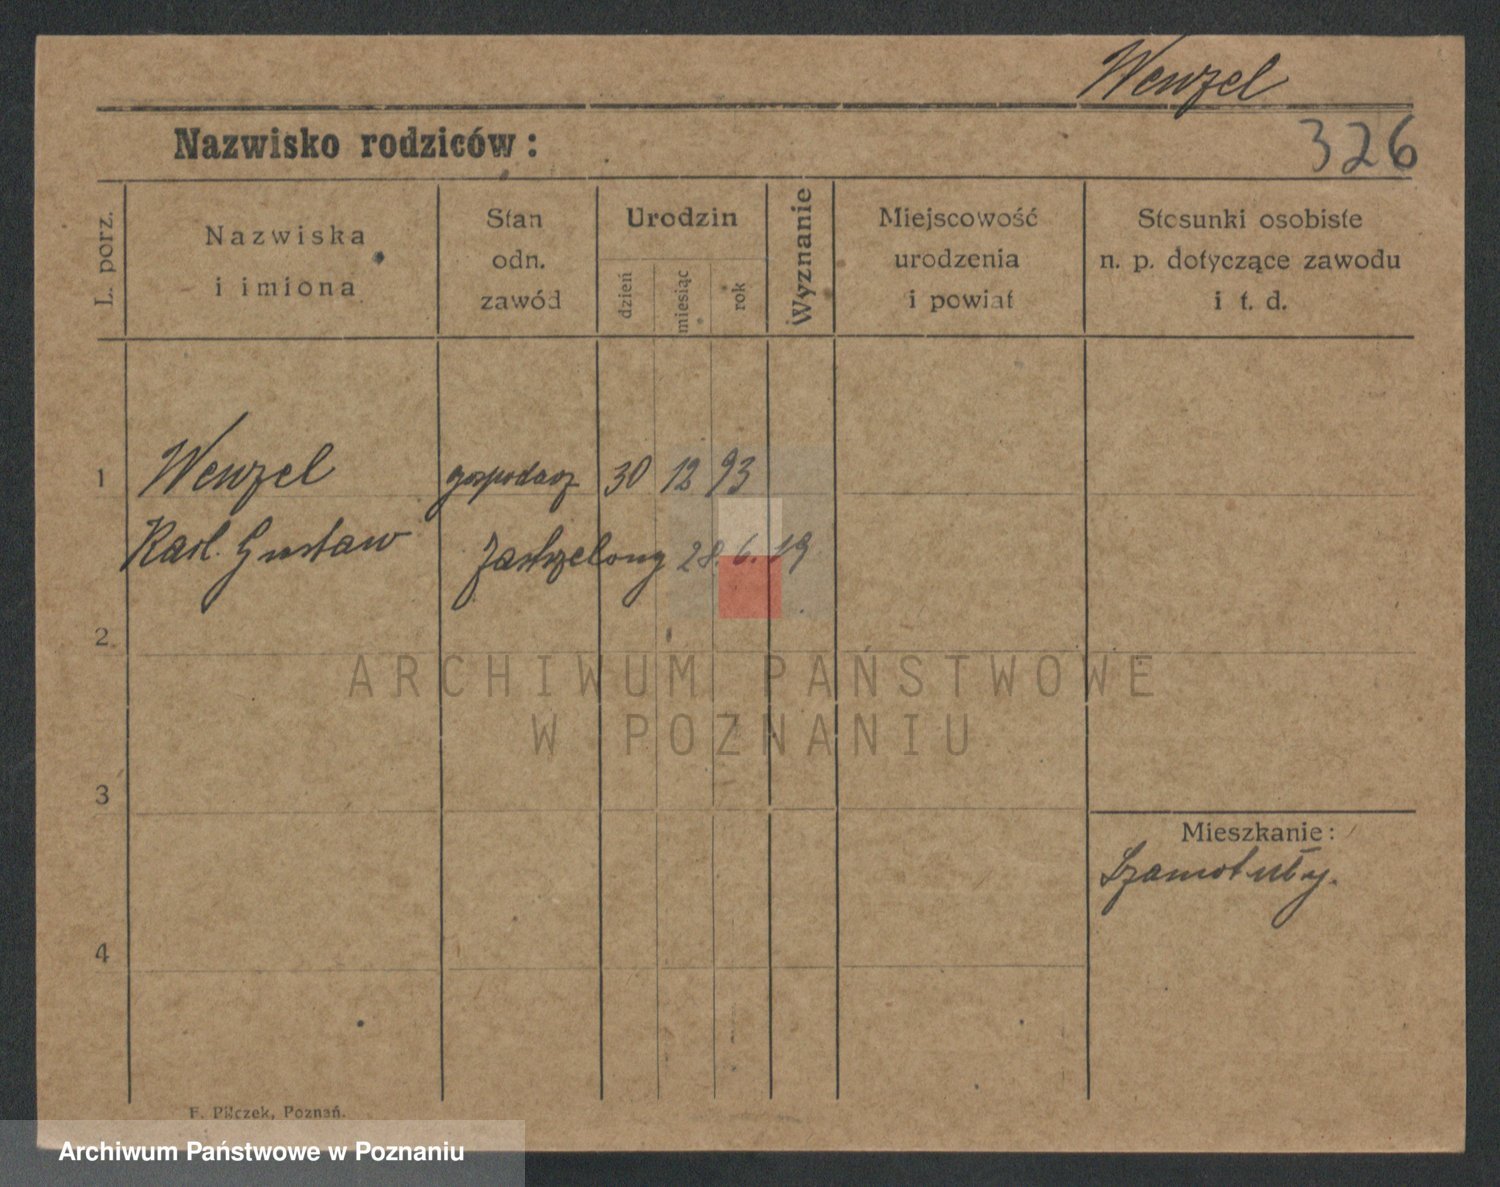 Wenzel
Nazwisko rodziców:
326
L. porz.
Nazwiska
i imiona
Stan
odn.
zawód
Urodzin
dzień
miesiąc
rok
Wyznanie
Miejscowość
urodzenia
i powiat
Stosunki osobiste
n. p. dotyczące zawodu
i t. d.
1 Wenzel gospodarz 30 12 93
Karl. Gustaw Zastrzelony 28. 6. 19
2
ARCHIWUM PAŃSTWOWE
W POZNANIU
3
Mieszkanie:
Szamotuły.
4
F. Pilczek, Poznań.
Archiwum Państwowe w Poznaniu